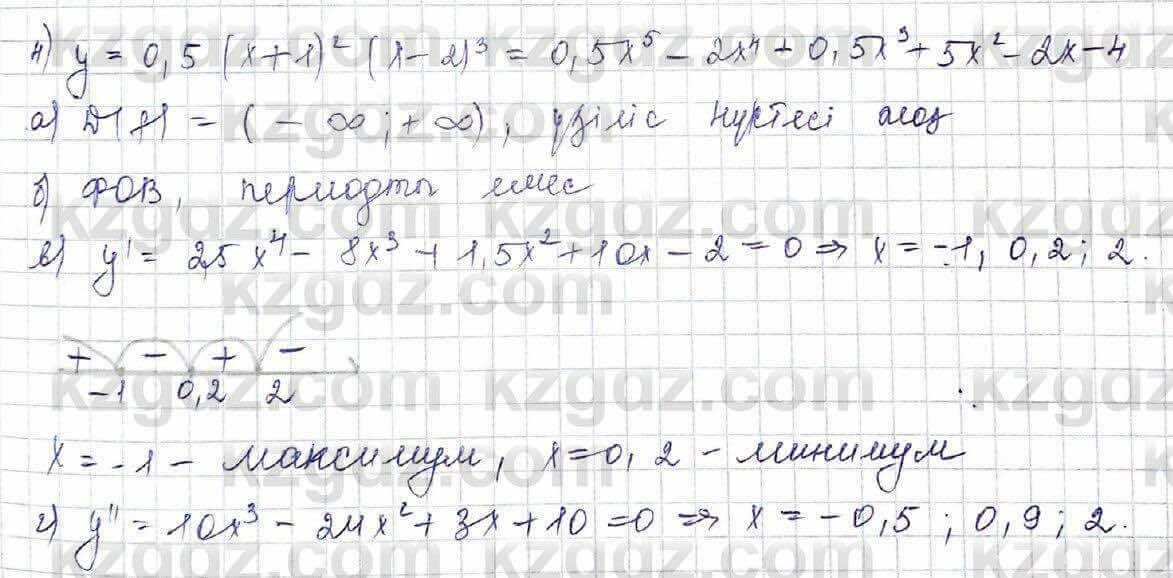 4) y = 0,5 (x+1)² (x-2)³ = 0,5x⁵ - 2x⁴ + 0,5x³ + 5x² - 2x - 4
а) D(y) = (-∞; +∞), үзіліс нүктесі жоқ
б) ФОВ, периодты емес
в) y' = 2,5x⁴ - 8x³ + 1,5x² + 10x - 2 = 0 ⇒ x = -1, 0,2; 2.
+ - + -
-1 0,2 2
x = -1 - максимум, x = 0,2 - минимум
г) y'' = 10x³ - 24x² + 3x + 10 = 0 ⇒ x = -0,5; 0,9; 2.
kzgdz.com